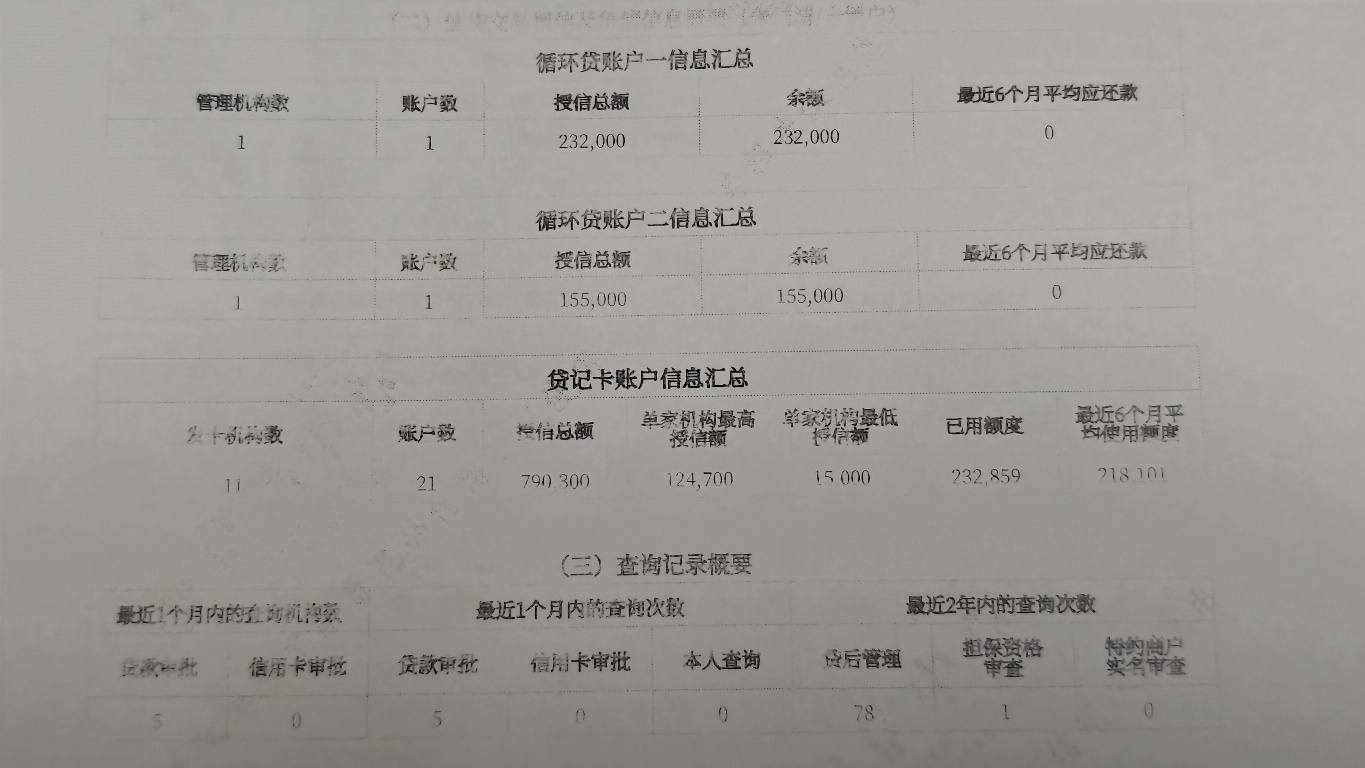 循环贷账户一信息汇总
管理机构数 账户数 授信总额 余额 最近6个月平均应还款
1 1 232,000 232,000 0
循环贷账户二信息汇总
管理机构数 账户数 授信总额 余额 最近6个月平均应还款
1 1 155,000 155,000 0
贷记卡账户信息汇总
发卡机构数 账户数 授信总额 单家机构最高授信额 单家机构最低授信额 已用额度 最近6个月平均使用额度
11 21 790,300 124,700 15,000 232,859 218,101
（三）查询记录概要
最近1个月内的查询机构数 最近1个月内的查询次数 最近2年内的查询次数
贷款审批 信用卡审批 贷款审批 信用卡审批 本人查询 贷后管理 担保资格审查 特约商户实名审查
5 0 5 0 0 78 1 0